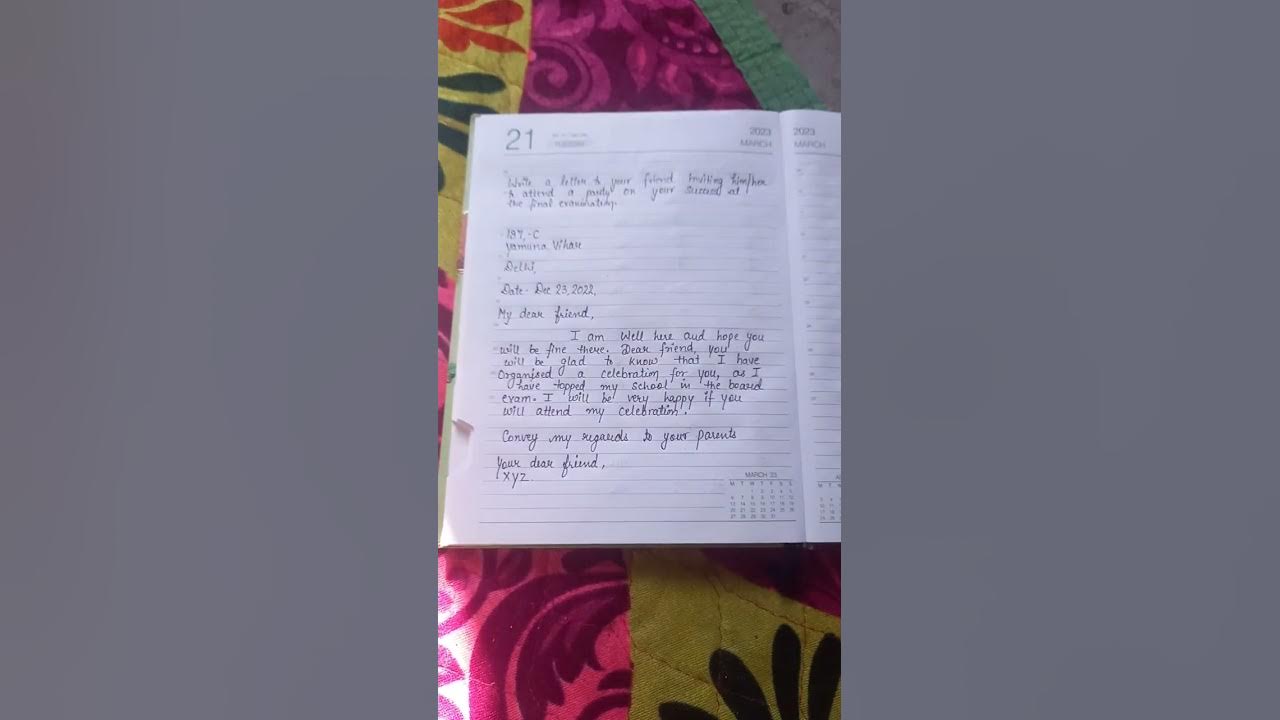 21
TUESDAY
2023
MARCH
2023
MARCH
Write a letter to your friend Inviting him/her
to attend a party on your Success at
the final examination.
Yamuna Vihar
Delhi,
Date- Dec 23, 2022,
My dear friend,
I am Well here and hope you
will be fine there. Dear friend, you
will be glad to know that I have
Organised a celebration for you, as I
have topped my school in the board
exam. I will be very happy if you
will attend my celebration.
Convey my regards to your parents
Your dear friend,
XYZ.
MARCH 23
M T W T F S S
1 2 3 4 5
6 7 8 9 10 11 12
13 14 15 16 17 18 19
20 21 22 23 24 25 26
27 28 29 30 31